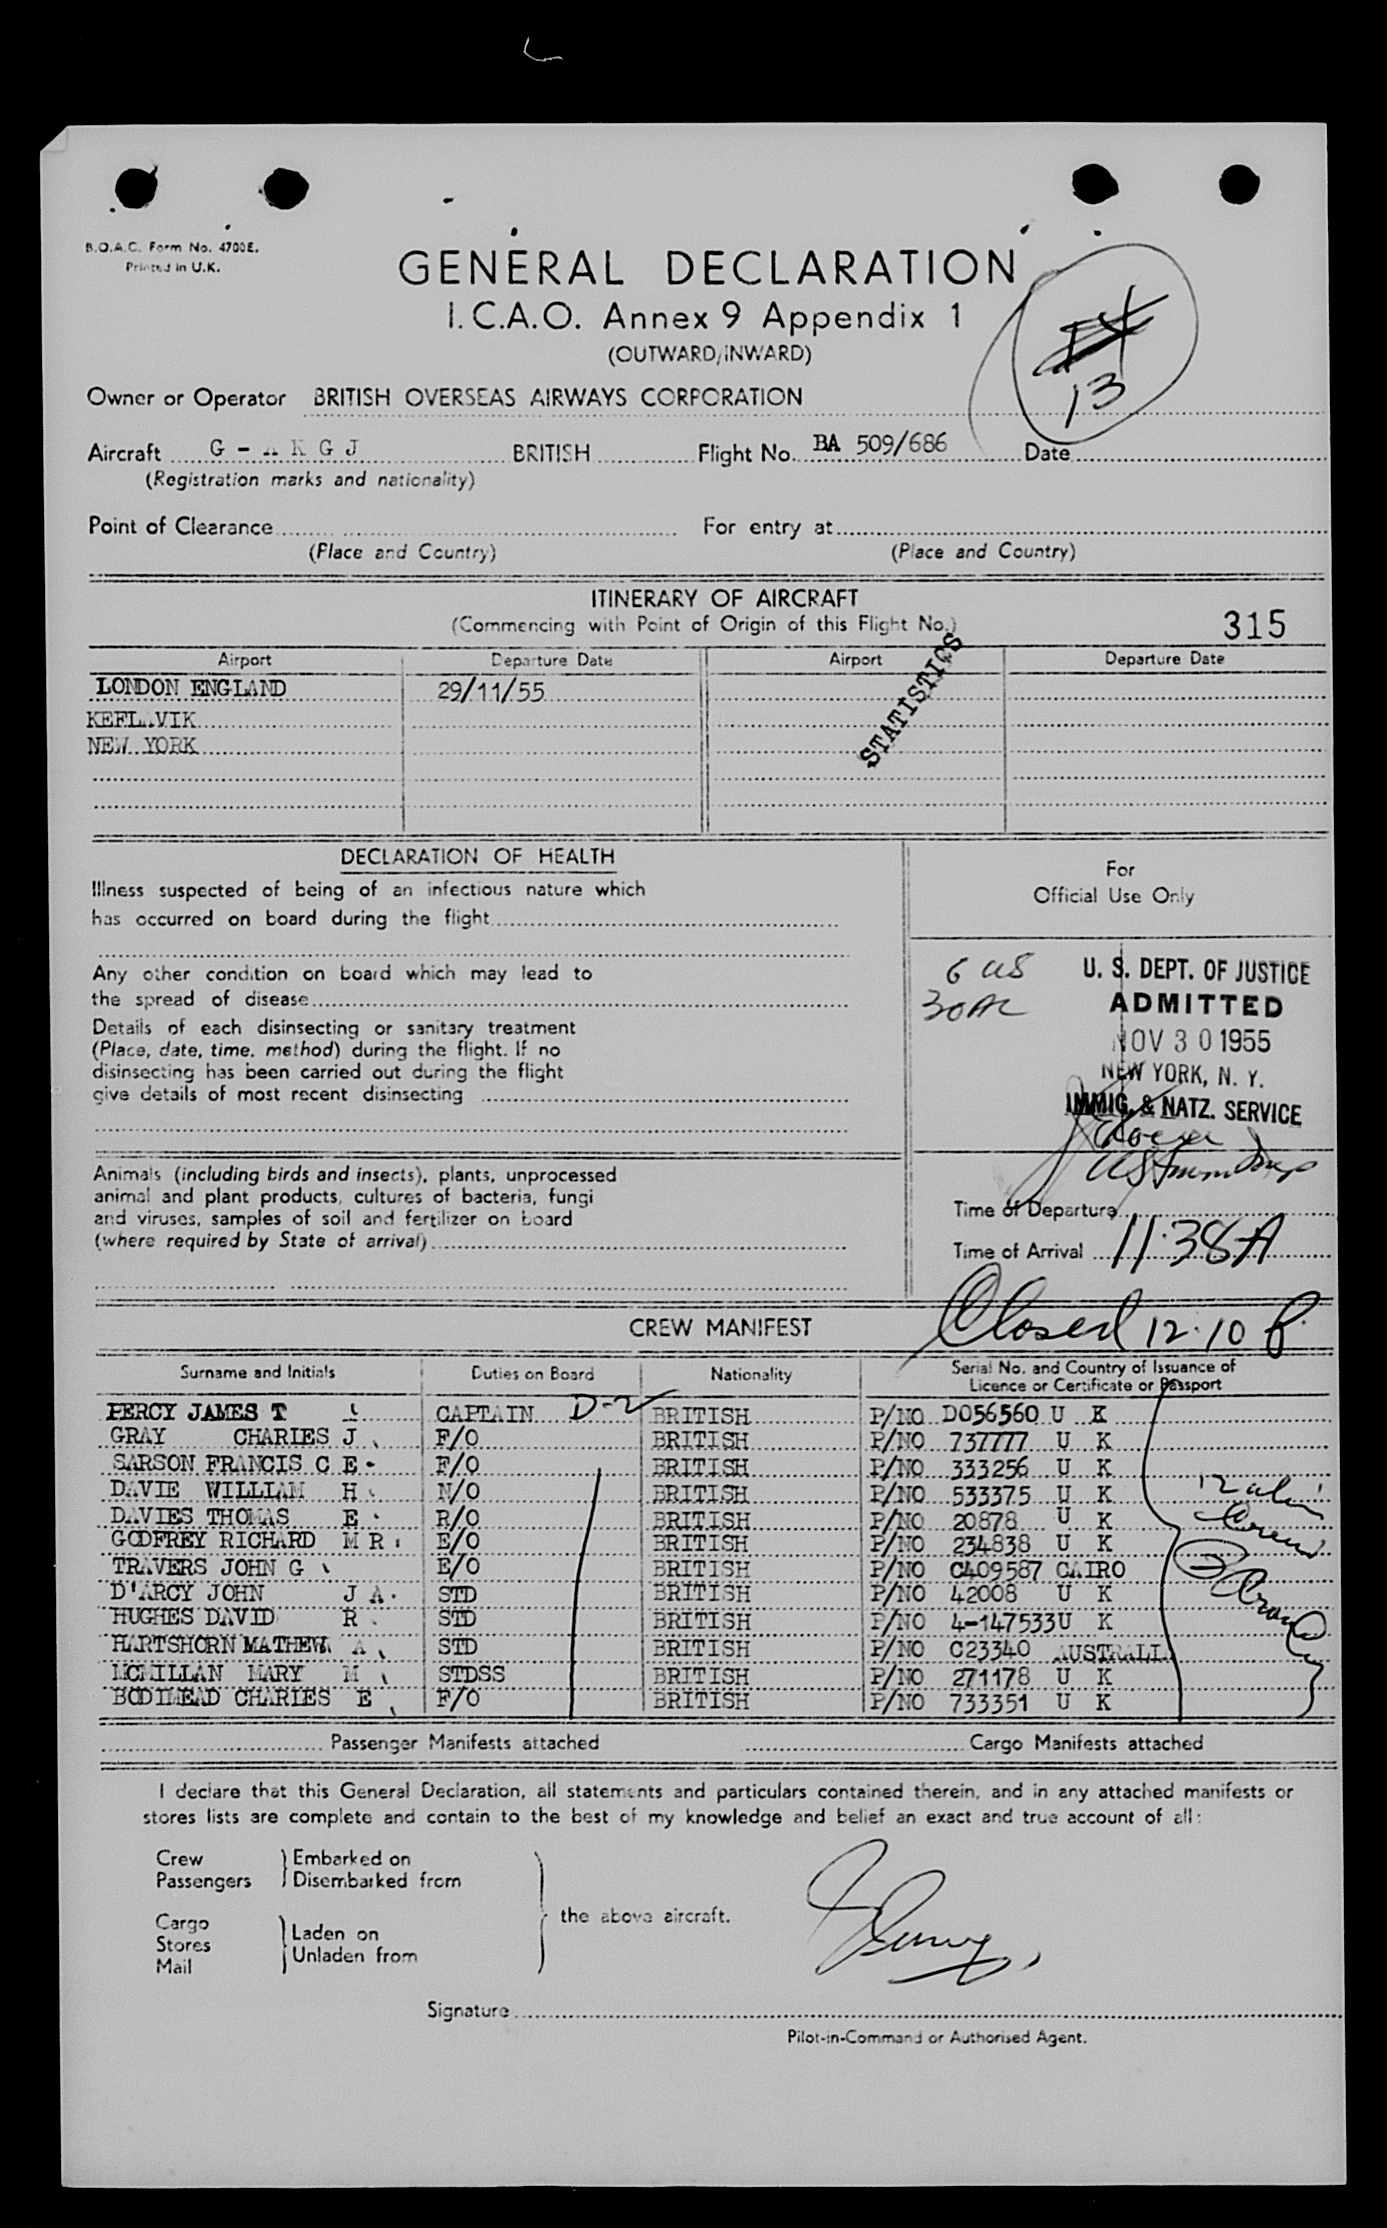 B.O.A.C. Form No. 4700E.
Printed in U.K.
GENERAL DECLARATION
I.C.A.O. Annex 9 Appendix 1
(OUTWARD/INWARD)
13
Owner or Operator BRITISH OVERSEAS AIRWAYS CORPORATION
Aircraft G - A K G J BRITISH Flight No. BA 509/686 Date
(Registration marks and nationality)
Point of Clearance For entry at
(Place and Country) (Place and Country)
ITINERARY OF AIRCRAFT
(Commencing with Point of Origin of this Flight No.)
315
Airport Departure Date Airport Departure Date
STATISTICS
LONDON ENGLAND 29/11/55
KEFLAVIK
NEW YORK
DECLARATION OF HEALTH
Illness suspected of being of an infectious nature which
has occurred on board during the flight
Any other condition on board which may lead to
the spread of disease
Details of each disinsecting or sanitary treatment
(Place, date, time, method) during the flight. If no
disinsecting has been carried out during the flight
give details of most recent disinsecting
For
Official Use Only
6 US
30 AL
U. S. DEPT. OF JUSTICE
ADMITTED
NOV 30 1955
NEW YORK, N. Y.
IMMIG. & NATZ. SERVICE
Animals (including birds and insects), plants, unprocessed
animal and plant products, cultures of bacteria, fungi
and viruses, samples of soil and fertilizer on board
(where required by State of arrival)
Time of Departure
Time of Arrival 11:38 A
Closed 12:10 P.
CREW MANIFEST
Surname and Initials Duties on Board Nationality Serial No. and Country of Issuance of
Licence or Certificate or Passport
PERCY JAMES T CAPTAIN D-2 BRITISH P/NO D056560 U K
GRAY CHARLES J F/O BRITISH P/NO 737777 U K
SARSON FRANCIS C E F/O BRITISH P/NO 333256 U K
DAVIE WILLIAM H N/O BRITISH P/NO 533375 U K
DAVIES THOMAS E R/O BRITISH P/NO 20878 U K
GODFREY RICHARD M R E/O BRITISH P/NO 234838 U K
TRAVERS JOHN G E/O BRITISH P/NO C409587 CAIRO
D'ARCY JOHN J A STD BRITISH P/NO 42008 U K
HUGHES DAVID R STD BRITISH P/NO 4-147533 U K
HARTSHORN MATHEW A STD BRITISH P/NO C23340 AUSTRALIA
MCMILLAN MARY M STDSS BRITISH P/NO 271178 U K
BODIMEAD CHARLES E F/O BRITISH P/NO 733351 U K
Passenger Manifests attached Cargo Manifests attached
I declare that this General Declaration, all statements and particulars contained therein, and in any attached manifests or
stores lists are complete and contain to the best of my knowledge and belief an exact and true account of all:
Crew
Passengers
Embarked on
Disembarked from
Cargo
Stores
Mail
Laden on
Unladen from
the above aircraft.
Signature
Pilot-in-Command or Authorised Agent.